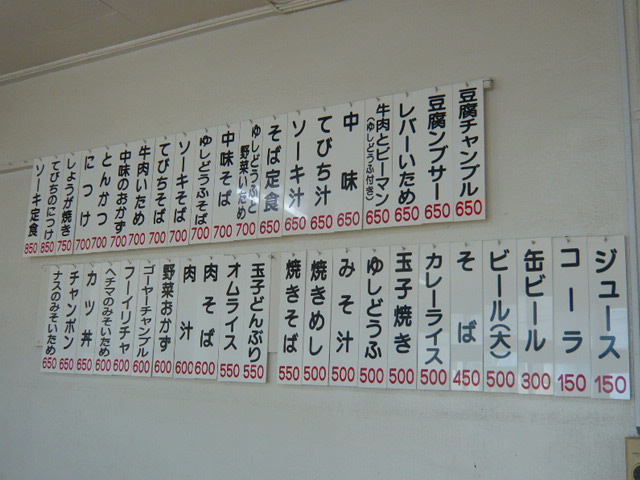 豆腐チャンプル 650
豆腐ンブサー 650
レバーいため 650
牛肉とピーマン (ゆしどうふ付き) 650
中味 650
てびち汁 650
ソーキ汁 650
そば定食 650
ゆしどうふと野菜いため 700
中味そば 700
ゆしどうふそば 700
ソーキそば 700
てびちそば 700
牛肉いため 700
中味のおかず 700
とんかつ 700
につけ 700
しょうが焼き 750
てびちのにつけ 850
ソーキ定食 850
ジュース 150
コーラ 150
缶ビール 300
ビール(大) 500
そば 450
カレーライス 500
玉子焼き 500
ゆしどうふ 500
みそ汁 500
焼きめし 500
焼きそば 550
玉子どんぶり 550
オムライス 550
肉そば 600
肉汁 600
野菜おかず 600
ゴーヤーチャンプル 600
フーイリチャ 600
ヘチマのみそいため 600
カツ丼 650
チャンポン 650
ナスのみそいため 650